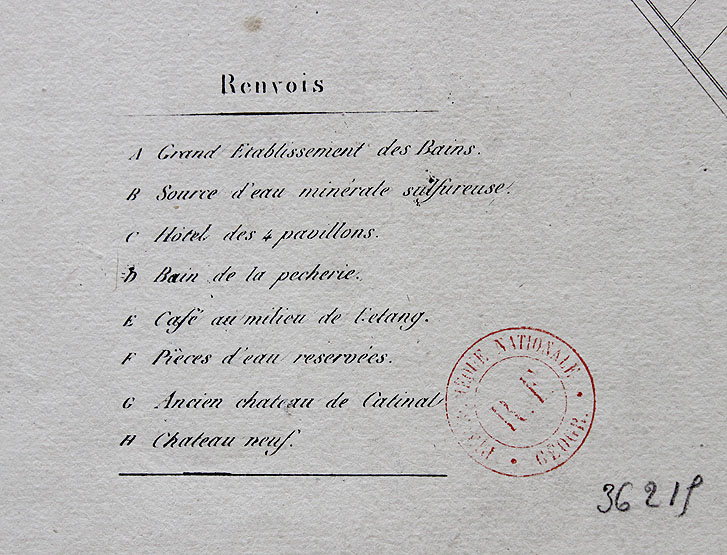 Renvois
A Grand Etablissement des Bains.
B Source d'eau minérale sulfureuse.
C Hôtel des 4 pavillons.
D Bain de la pecherie.
E Café au milieu de l'etang.
F Pièces d'eau reservées.
G Ancien chateau de Catinat
H Chateau neuf.
NATIONALE
R.F
GÉOGR.